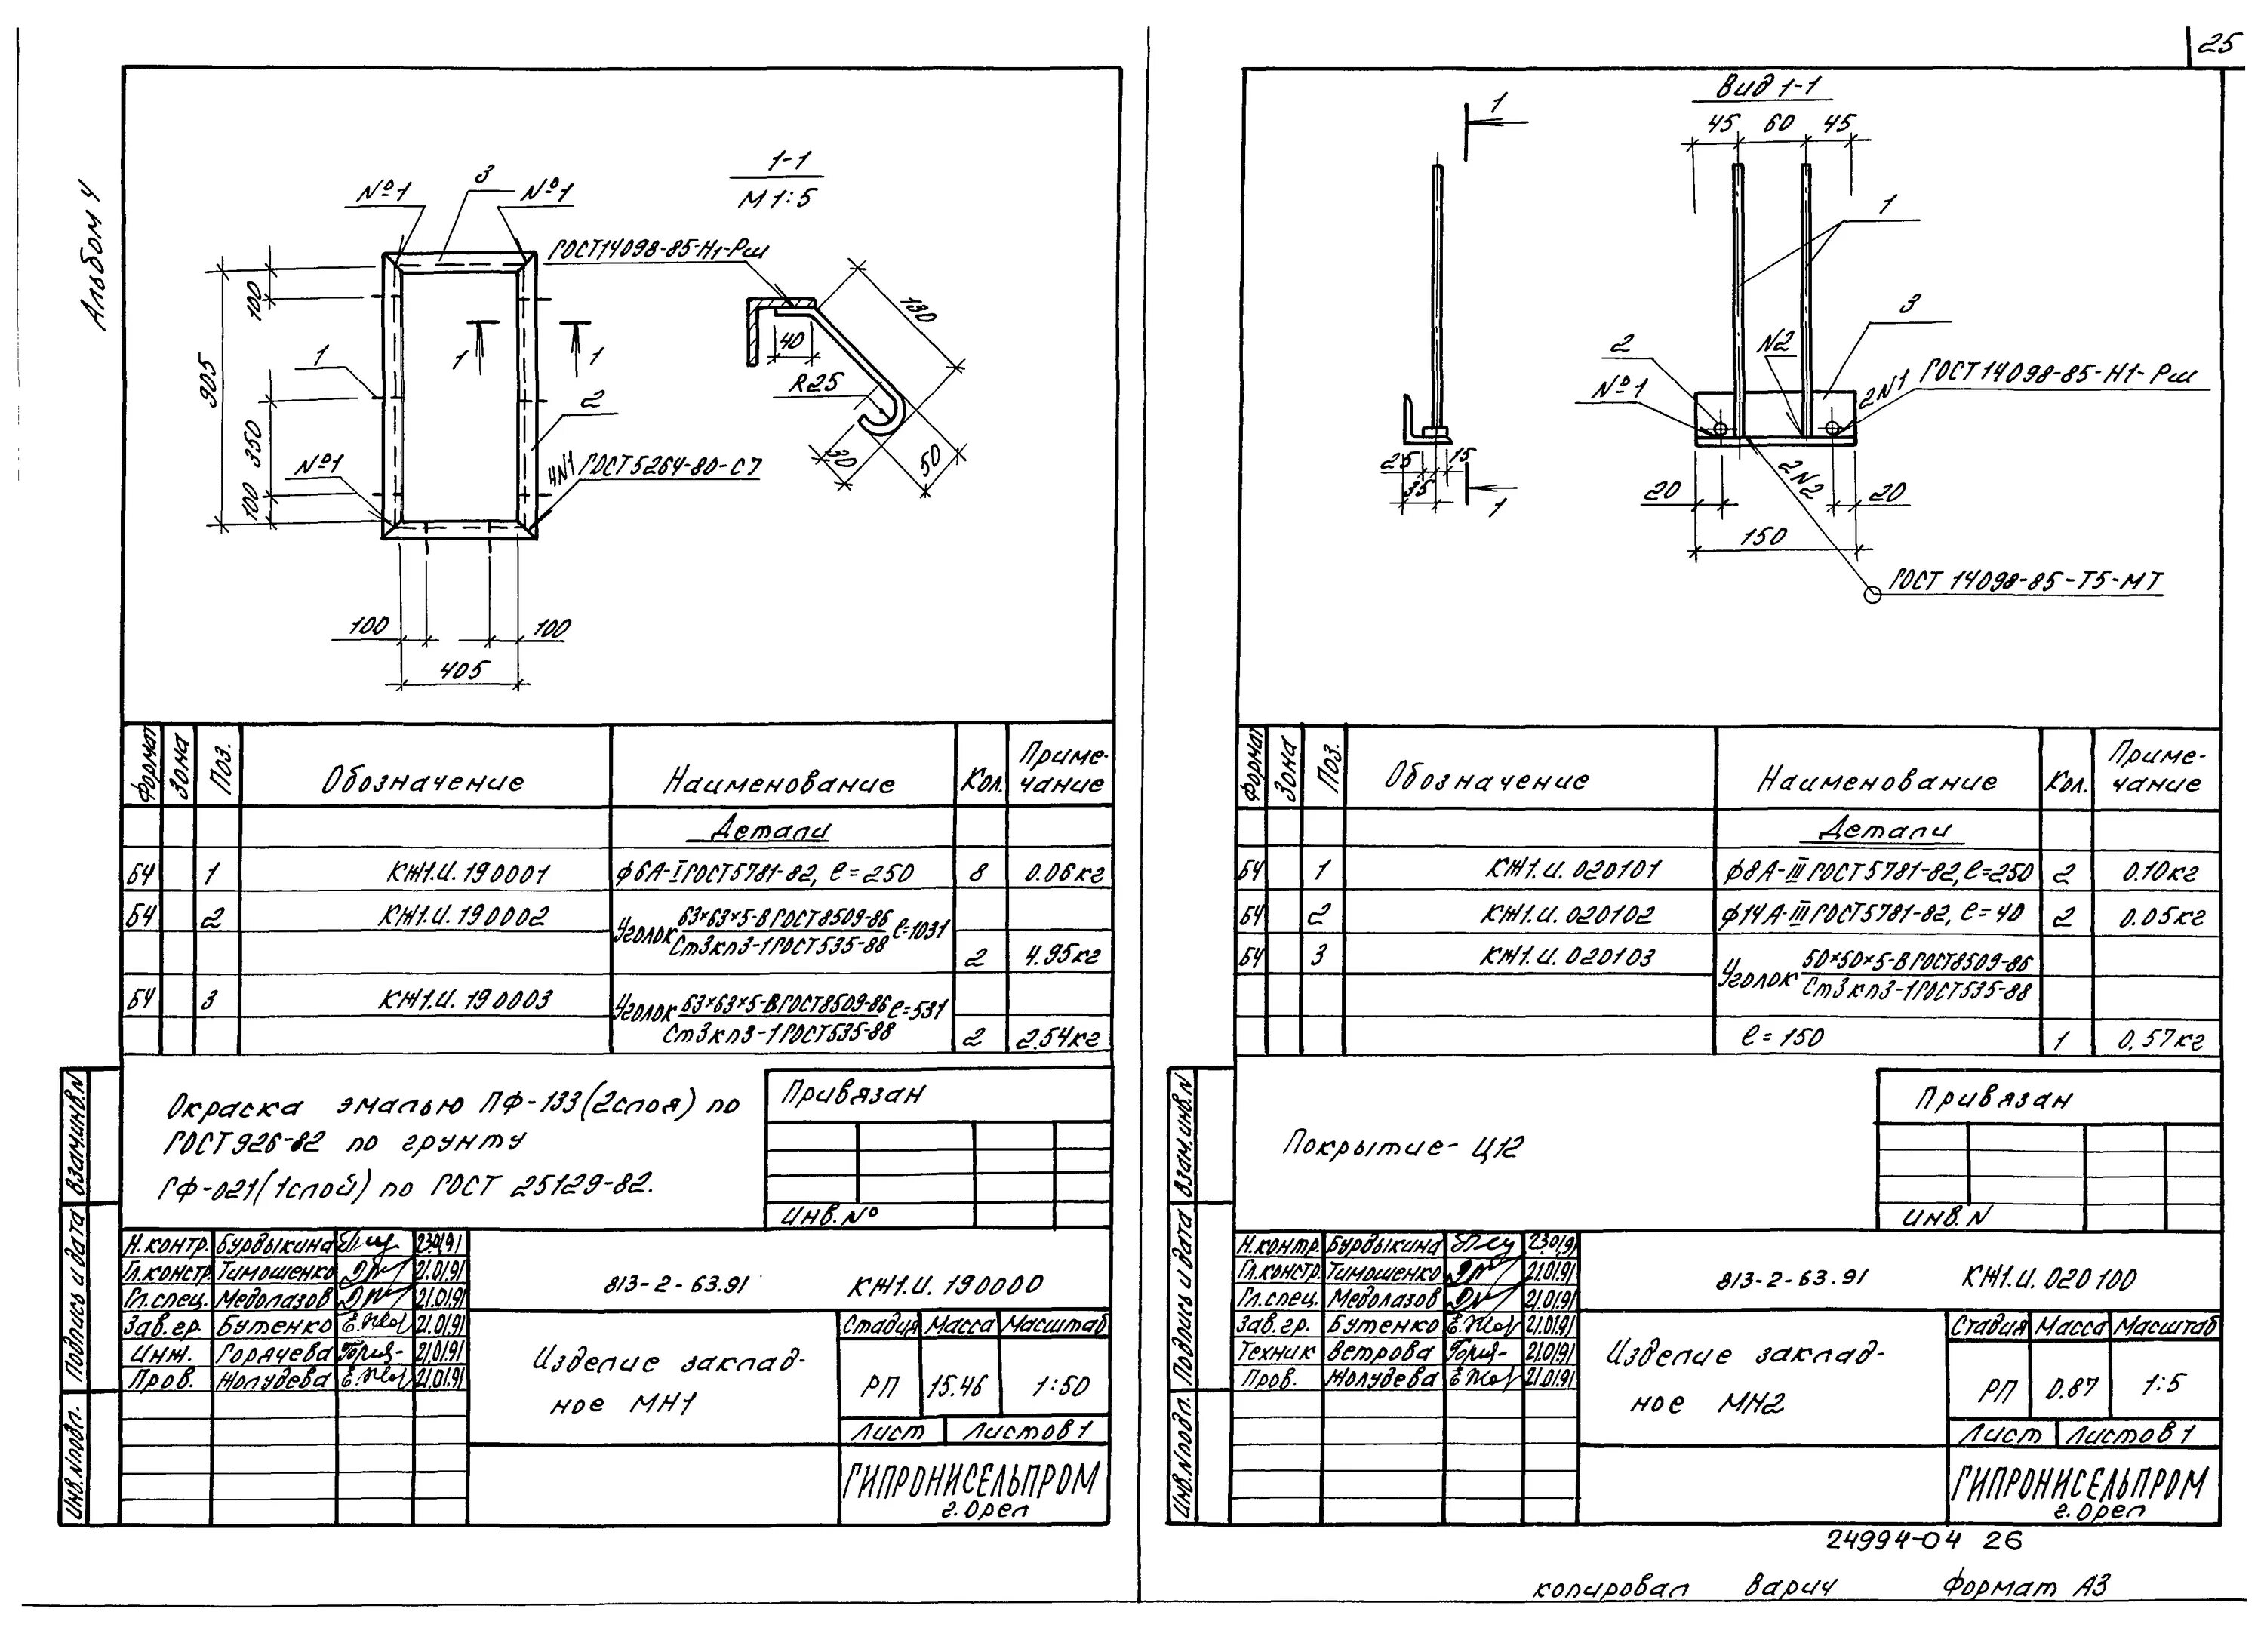 25
Альбом 4
1-1
М 1:5
№1
3
№1
ГОСТ14098-85-Н1-Рш
100
905
1
350
100
№1
1
1
2
4N1 ГОСТ5264-80-С7
100
100
405
130
40
R25
30
50
Формат
Зона
Поз.
Обозначение
Наименование
Кол.
Приме-
чание
Детали
БЧ 1 КЖ1.И.190001 ф6А-I ГОСТ5781-82, ℓ=250 8 0.06кг
БЧ 2 КЖ1.И.190002 Уголок 63×63×5-В ГОСТ8509-86 ℓ=1031
Ст3кп3-1 ГОСТ535-88 2 4.95кг
БЧ 3 КЖ1.И.190003 Уголок 63×63×5-В ГОСТ8509-86 ℓ=531
Ст3кп3-1 ГОСТ535-88 2 2.54кг
Окраска эмалью ПФ-133(2слоя) по
ГОСТ926-82 по грунту
ГФ-021(1слой) по ГОСТ 25129-82.
Привязан
Инв.№
Взам.инв.N
Подпись и дата
Инв.Nподл.
Н.контр. Бурдыкина 23.01.91
Гл.констр. Тимошенко 21.01.91
Гл.спец. Медолазов 21.01.91
Зав.гр. Бутенко 21.01.91
Инж. Горячева 21.01.91
Пров. Жолудева 21.01.91
813-2-63.91 КЖ1.И.190000
Изделие заклад-
ное МН1
Стадия Масса Масштаб
РП 15.46 1:50
Лист Листов 1
ГИПРОНИСЕЛЬПРОМ
г. Орел
Вид 1-1
45 60 45
1
1
1
2
№1
N2
3
2N1 ГОСТ14098-85-Н1-Рш
25
15
35
20
2N2
20
150
ГОСТ 14098-85-Т5-МТ
Формат
Зона
Поз.
Обозначение
Наименование
Кол.
Приме-
чание
Детали
БЧ 1 КЖ1.И.020101 ф8А-III ГОСТ5781-82, ℓ=250 2 0.10кг
БЧ 2 КЖ1.И.020102 ф14А-III ГОСТ5781-82, ℓ=40 2 0.05кг
БЧ 3 КЖ1.И.020103 Уголок 50×50×5-В ГОСТ8509-86
Ст3кп3-1 ГОСТ535-88
ℓ=150 1 0,57кг
Покрытие-Ц12
Привязан
Инв.N
Взам.инв.N
Подпись и дата
Инв.Nподл.
Н.контр. Бурдыкина 23.01.91
Гл.констр. Тимошенко 21.01.91
Гл.спец. Медолазов 21.01.91
Зав.гр. Бутенко 21.01.91
Техник Ветрова 21.01.91
Пров. Жолудева 21.01.91
813-2-63.91 КЖ1.И.020100
Изделие заклад-
ное МН2
Стадия Масса Масштаб
РП 0.87 1:5
Лист Листов 1
ГИПРОНИСЕЛЬПРОМ
г. Орел
24994-04 26
копировал Варич Формат А3